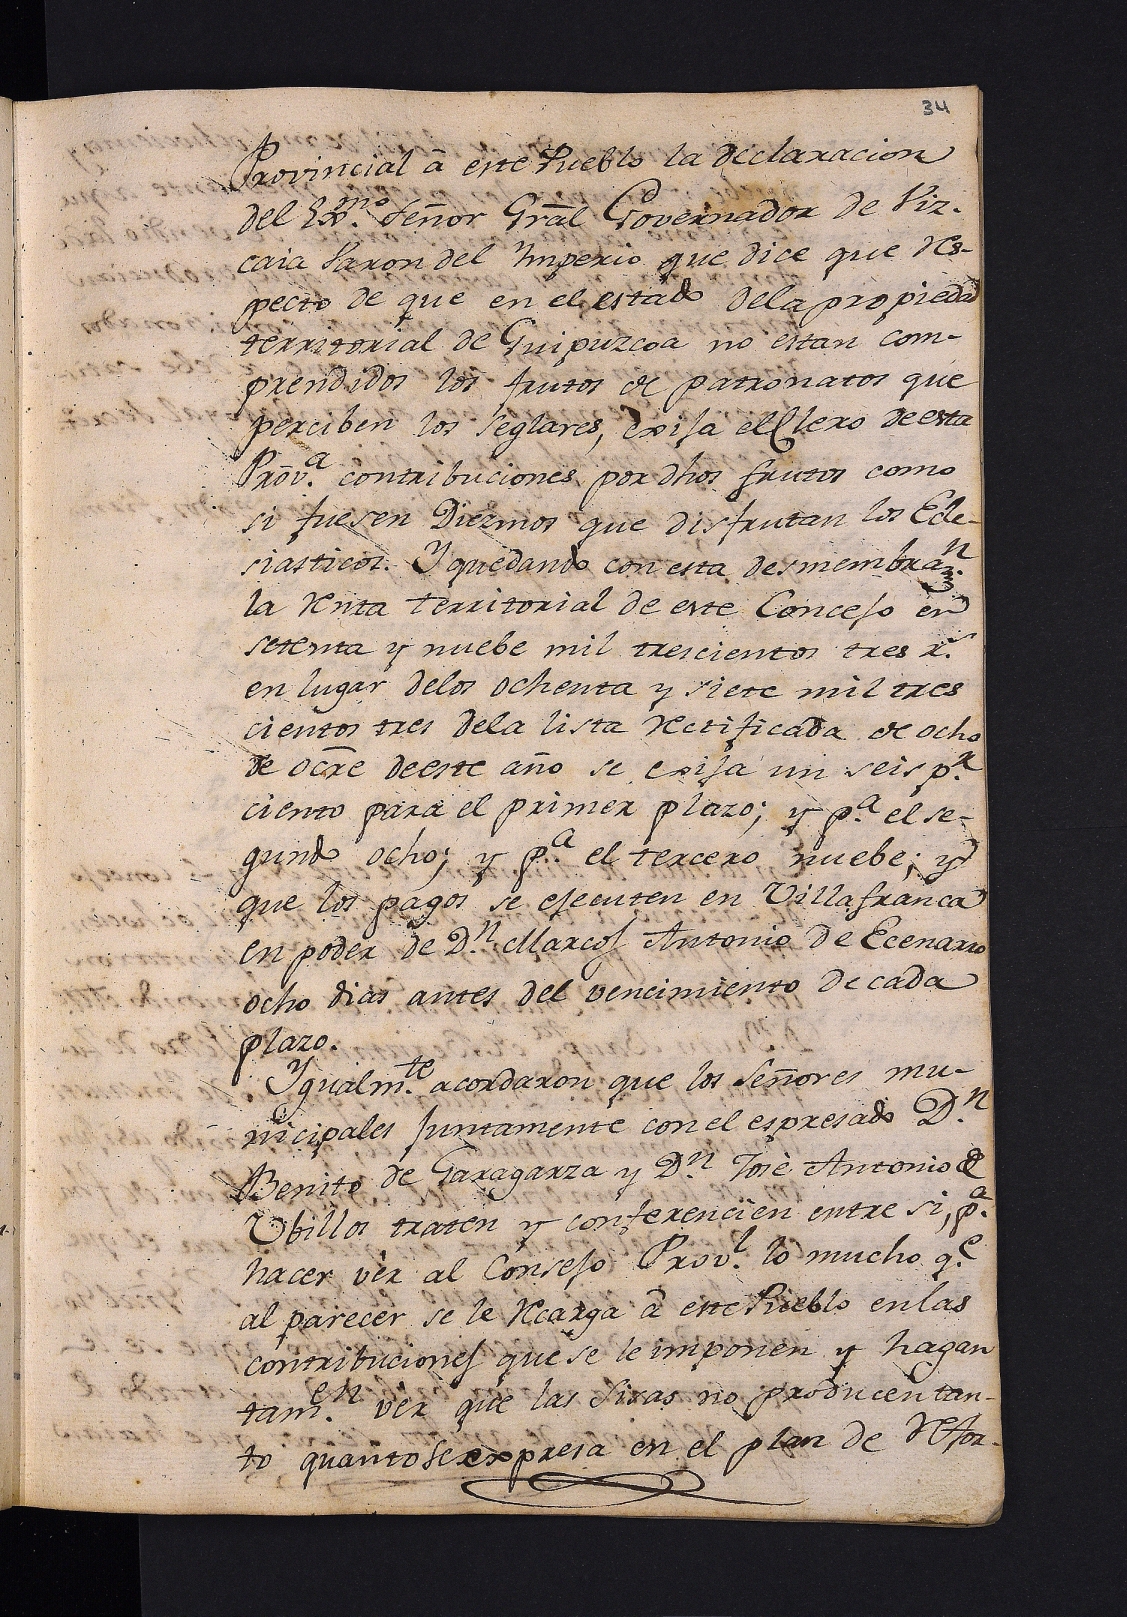 34
Provincial â este Pueblo la declaracion
del Exmo. Señor Grāl Governador de Viz-
caia Baron del Ymperio que dice que res-
pecto de que en el estado dela propiedad
territorial de Guipuzcoa no estan com-
prendidos los frutos de patronatos que
perciben los Seglares, exija el Clero de esta
Prov.a contribuciones por dhos frutos como
si fuesen Diezmos que disfrutan los Ecle-
siasticos. Y quedando con esta desmembraz.n
la renta territorial de este Concejo en
setenta y nuebe mil trescientos tres r.s
en lugar delos ochenta y siete mil tres
cientos tres dela lista rectificada de ocho
de ocrē de este año se exija un seis p.r
ciento para el primer plazo; y p.a el se-
gundo ocho; y p.a el tercero nuebe; y
que los pagos se ejecuten en Villafranca
en poder de D.n Marcos Antonio de Ecenarro
ocho dias antes del vencimiento de cada
plazo.
Ygualm.te acordaron que los Señores mu-
nicipales juntamente con el espresado D.n
Benito de Garagarza y D.n José Antonio de
Ubillos traten y conferencien entre si, p.a
hacer vèr al Consejo Prov.l lo mucho q.e
al parecer se le recarga â este Pueblo en las
contribuciones que se le imponen y hagan
tam.en vèr que las sisas no producen tan-
to quanto se expresa en el plan de refor-